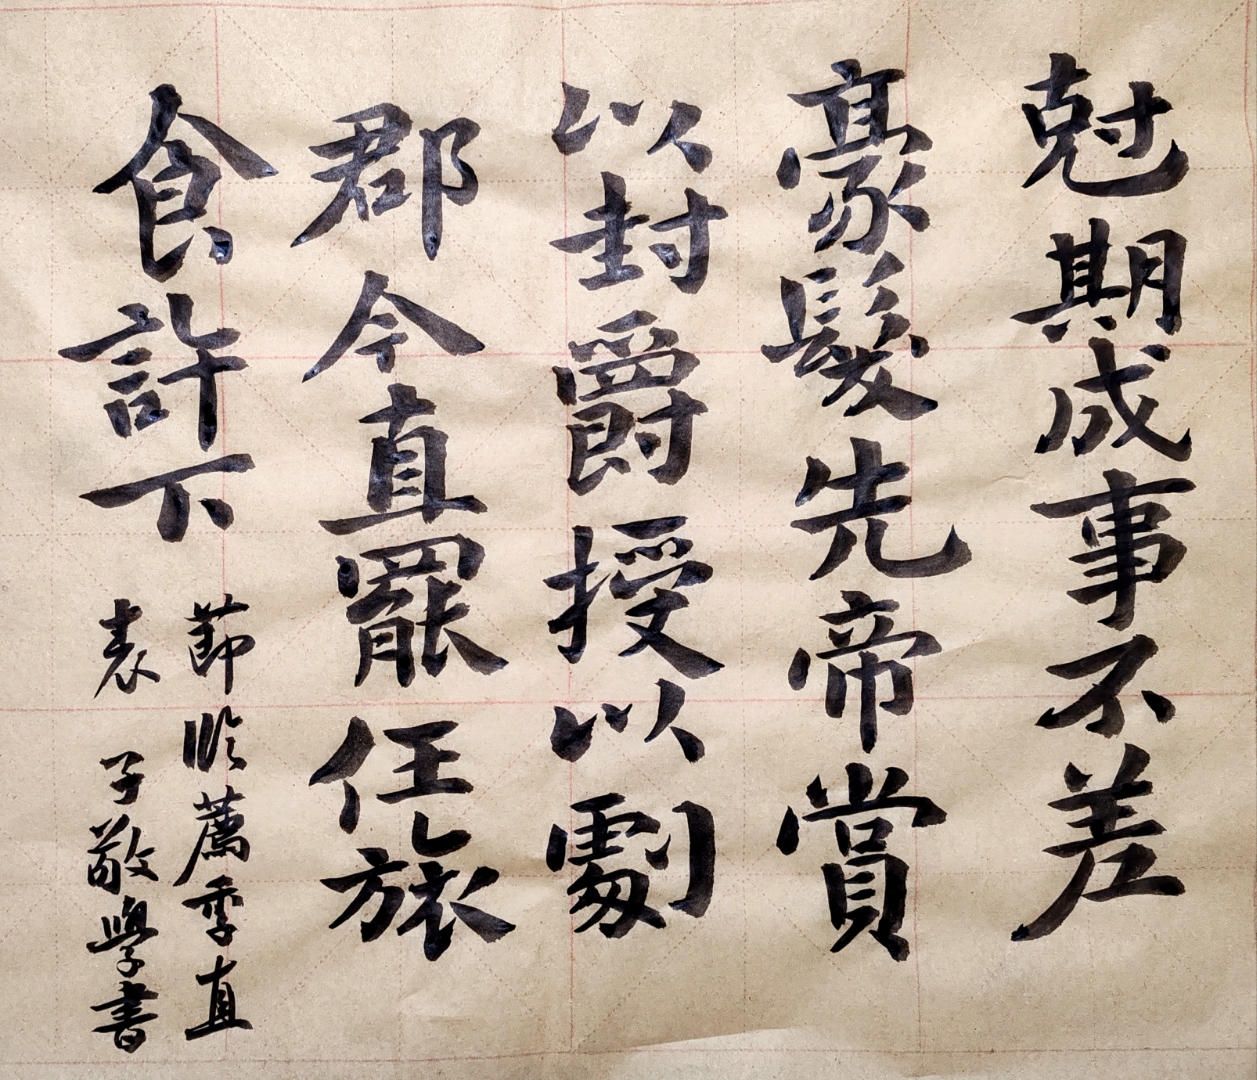 尅期成事不差
豪髮先帝賞
以封爵授以劇
郡今直罷任旅
食許下
節臨薦季直
表 子敬學書